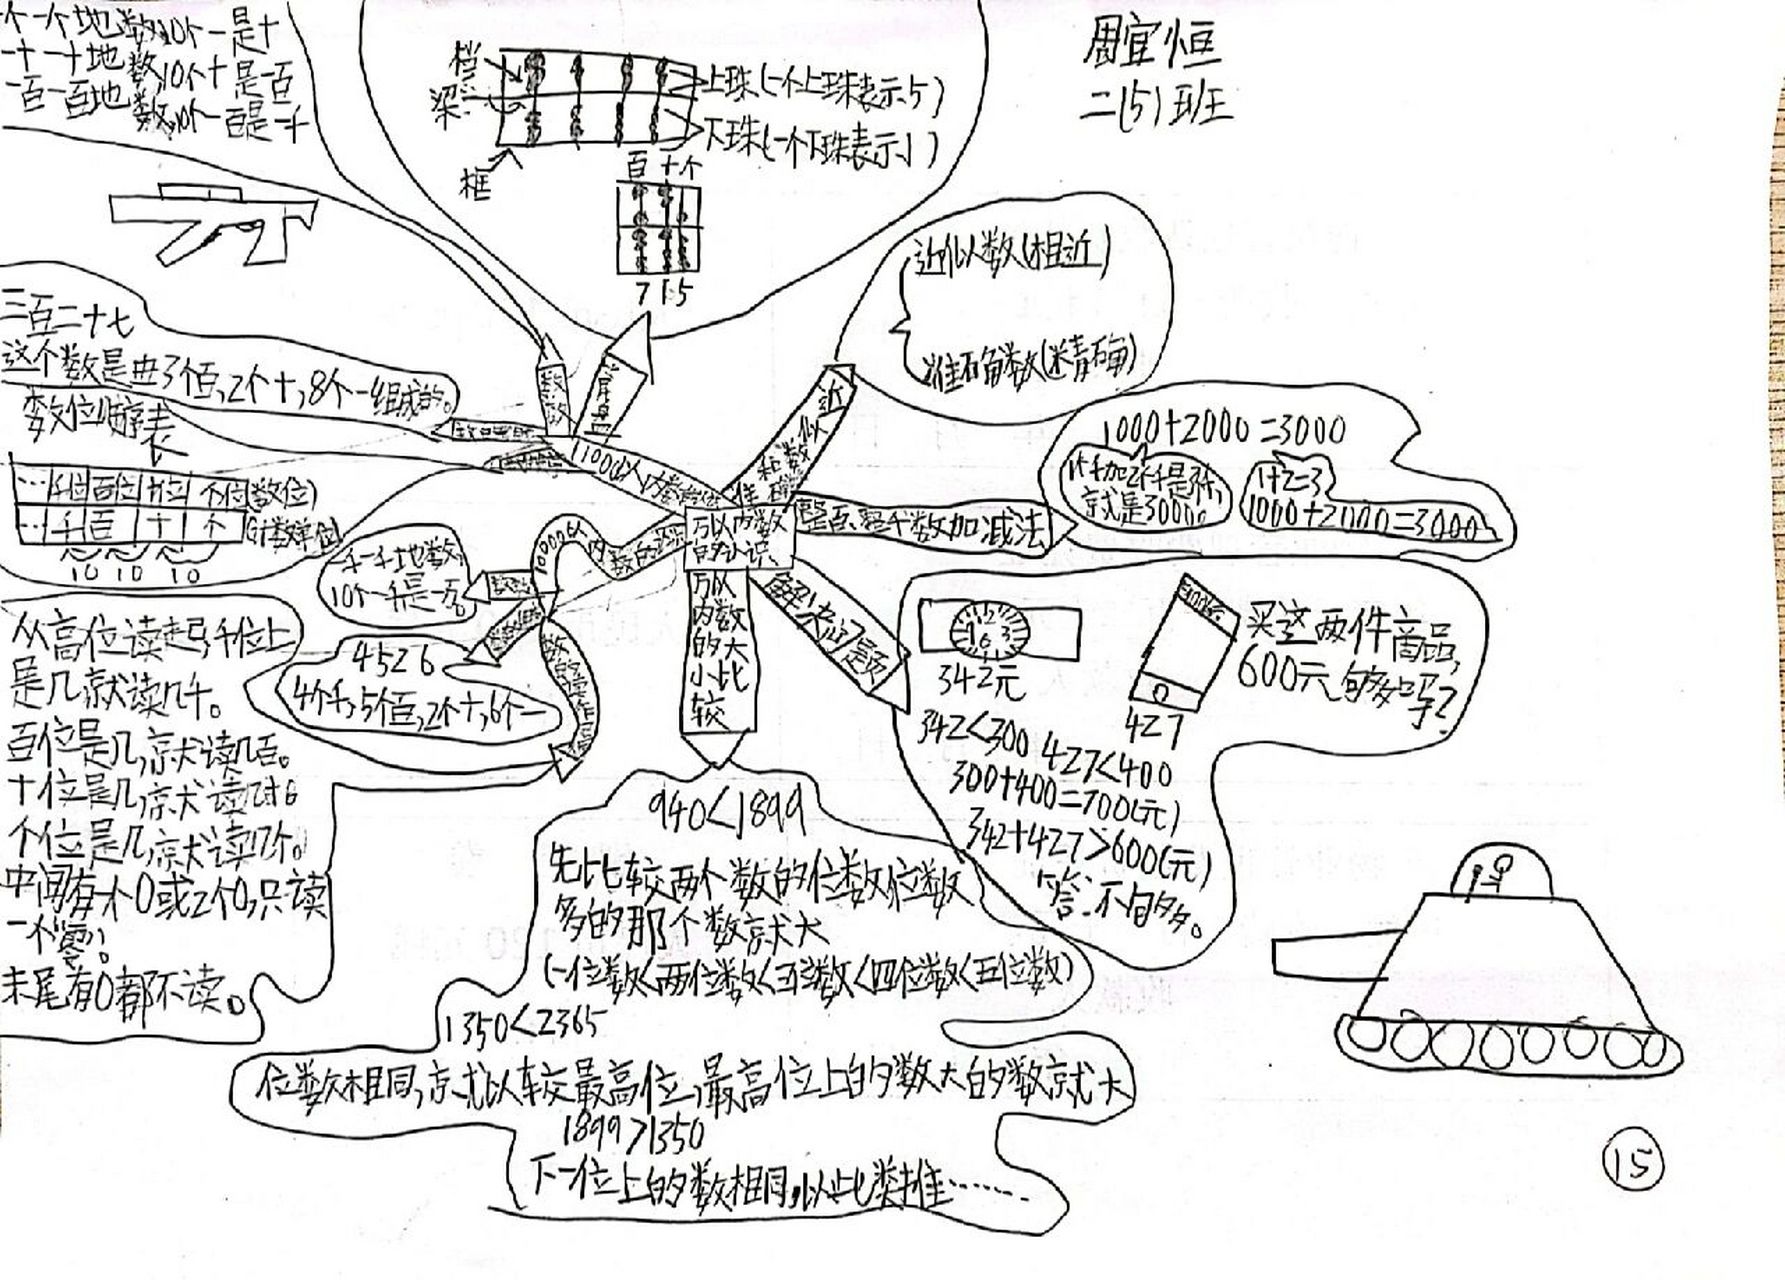 周宜恒
二(5)班
一个一个地数,10个一是十
一十一十地数,10个十是一百
一百一百地数,10个一百是一千
档
梁
框
上珠(一个上珠表示5)
下珠(一个下珠表示1)
百 十 个
7 1 5
近似数(相近)
准确数(精确)
三百二十七
这个数是由3个百,2个十,8个一组成的。
数位顺序表
… 千位 百位 十位 个位 (数位)
… 千 百 十 个 (计数单位)
10 10 10
数数
算盘
1000以内数
近似数和准确数
整百、整千数加减法
1000+2000=3000
1个千加2个千是3个千,
就是3000。
1+2=3
1000+2000=3000
万以内数的认识
10000以内数的认识
数数
一千一千地数,
10个一千是一万。
4526
4个千,5个百,2个十,6个一
从高位读起,千位上
是几就读几千。
百位是几,就读几百。
十位是几,就读几十。
个位是几,就读几个。
中间有一个0或2个0,只读
一个“零”。
末尾有0都不读。
万以内数的大小比较
940<1899
先比较两个数的位数,位数
多的那个数就大
(一位数<两位数<三位数<四位数<五位数)
1350<2365
位数相同,就比较最高位,最高位上的数大的数就大
1899>1350
下一位上的数相同,以此类推……
解决问题
12
9 3
6
342元
427
买这两件商品,
600元,够吗?
342<300 427<400
300+400=700(元)
342+427>600(元)
答:不够。
15